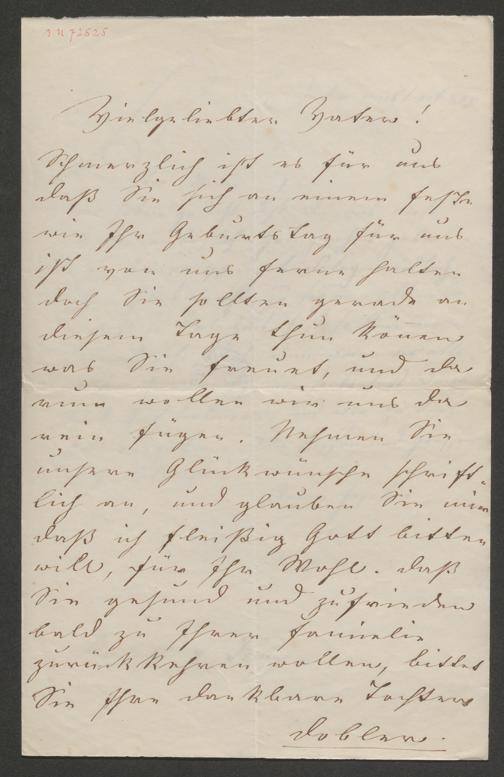 I.N 72525
Vielgeliebter Vater!
Schmerzlich ist es für uns
daß Sie sich an einem Feste
wie Ihr Geburtstag für uns
ist von uns ferne halten
doch Sie sollten gerade an
diesem Tage thun können
was Sie freuet, und da
rum wollen wir uns da
rein fügen. Nehmen Sie
unsere Glückwünsche schrift-
lich an, und glauben Sie mir
daß ich fleißig Gott bitten
will, für Ihr Wohl. daß
Sie gesund und zufrieden
bald zu Ihrer Familie
zurückkehren wollen, bittet
Sie Ihre dankbare Tochter
Dobler.